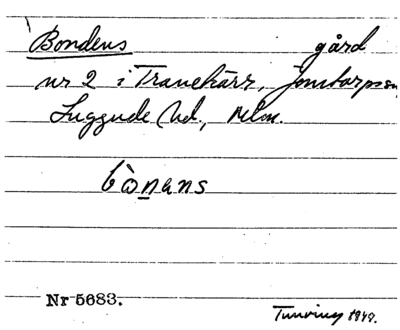 Bondens gård
nr 2 i Tranekärr, Jonstorps sn,
Luggude hd., Mlm.
bònans
Nr 5683.
Tunving 1949.